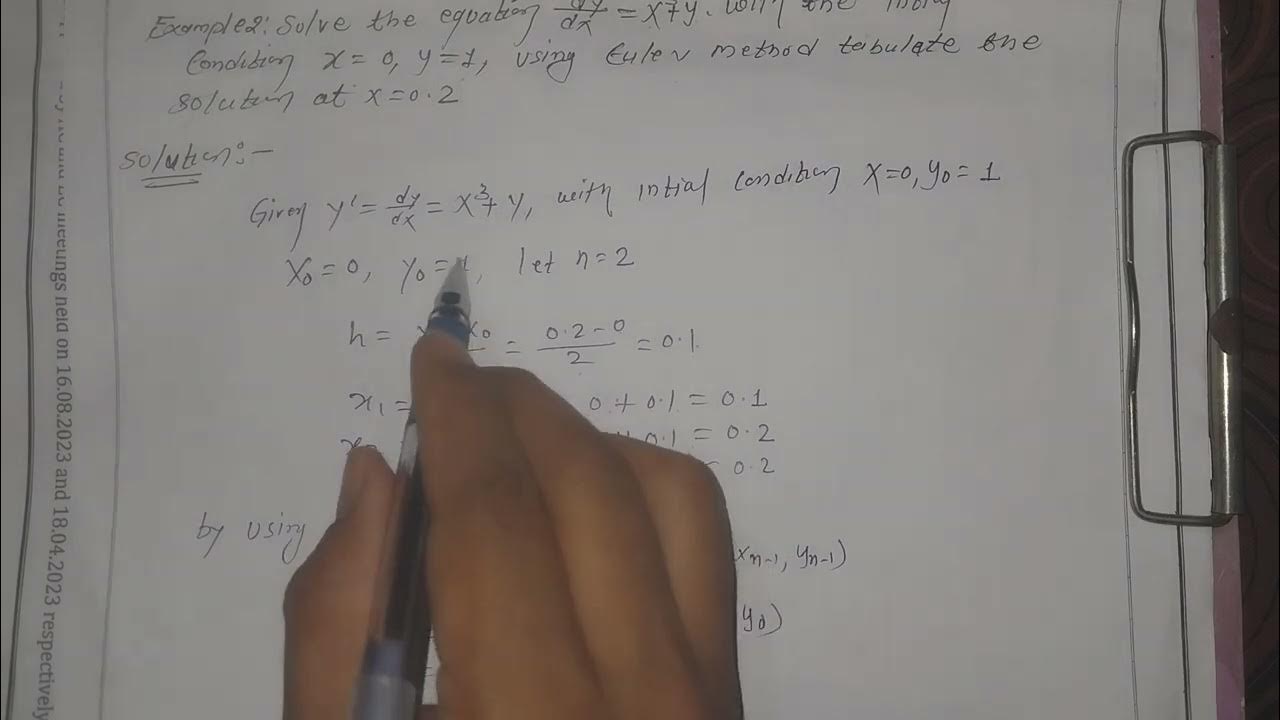 Example 2: Solve the equation dy/dx = x³+y. with the
Condition x = 0, y = 1, using Euler method tabulate the
solution at x = 0.2
Solution:-
Given y' = dy/dx = x³+ y, with intial condition x=0, y₀ = 1
x₀ = 0, y₀ = 1, let n = 2
h = x₀ = 0.2 - 0 / 2 = 0.1
x₁ = 0 + 0.1 = 0.1
0.1 = 0.2
0.2
by using xₙ₋₁, yₙ₋₁)
y₀)
meetings held on 16.08.2023 and 18.04.2023 respectively